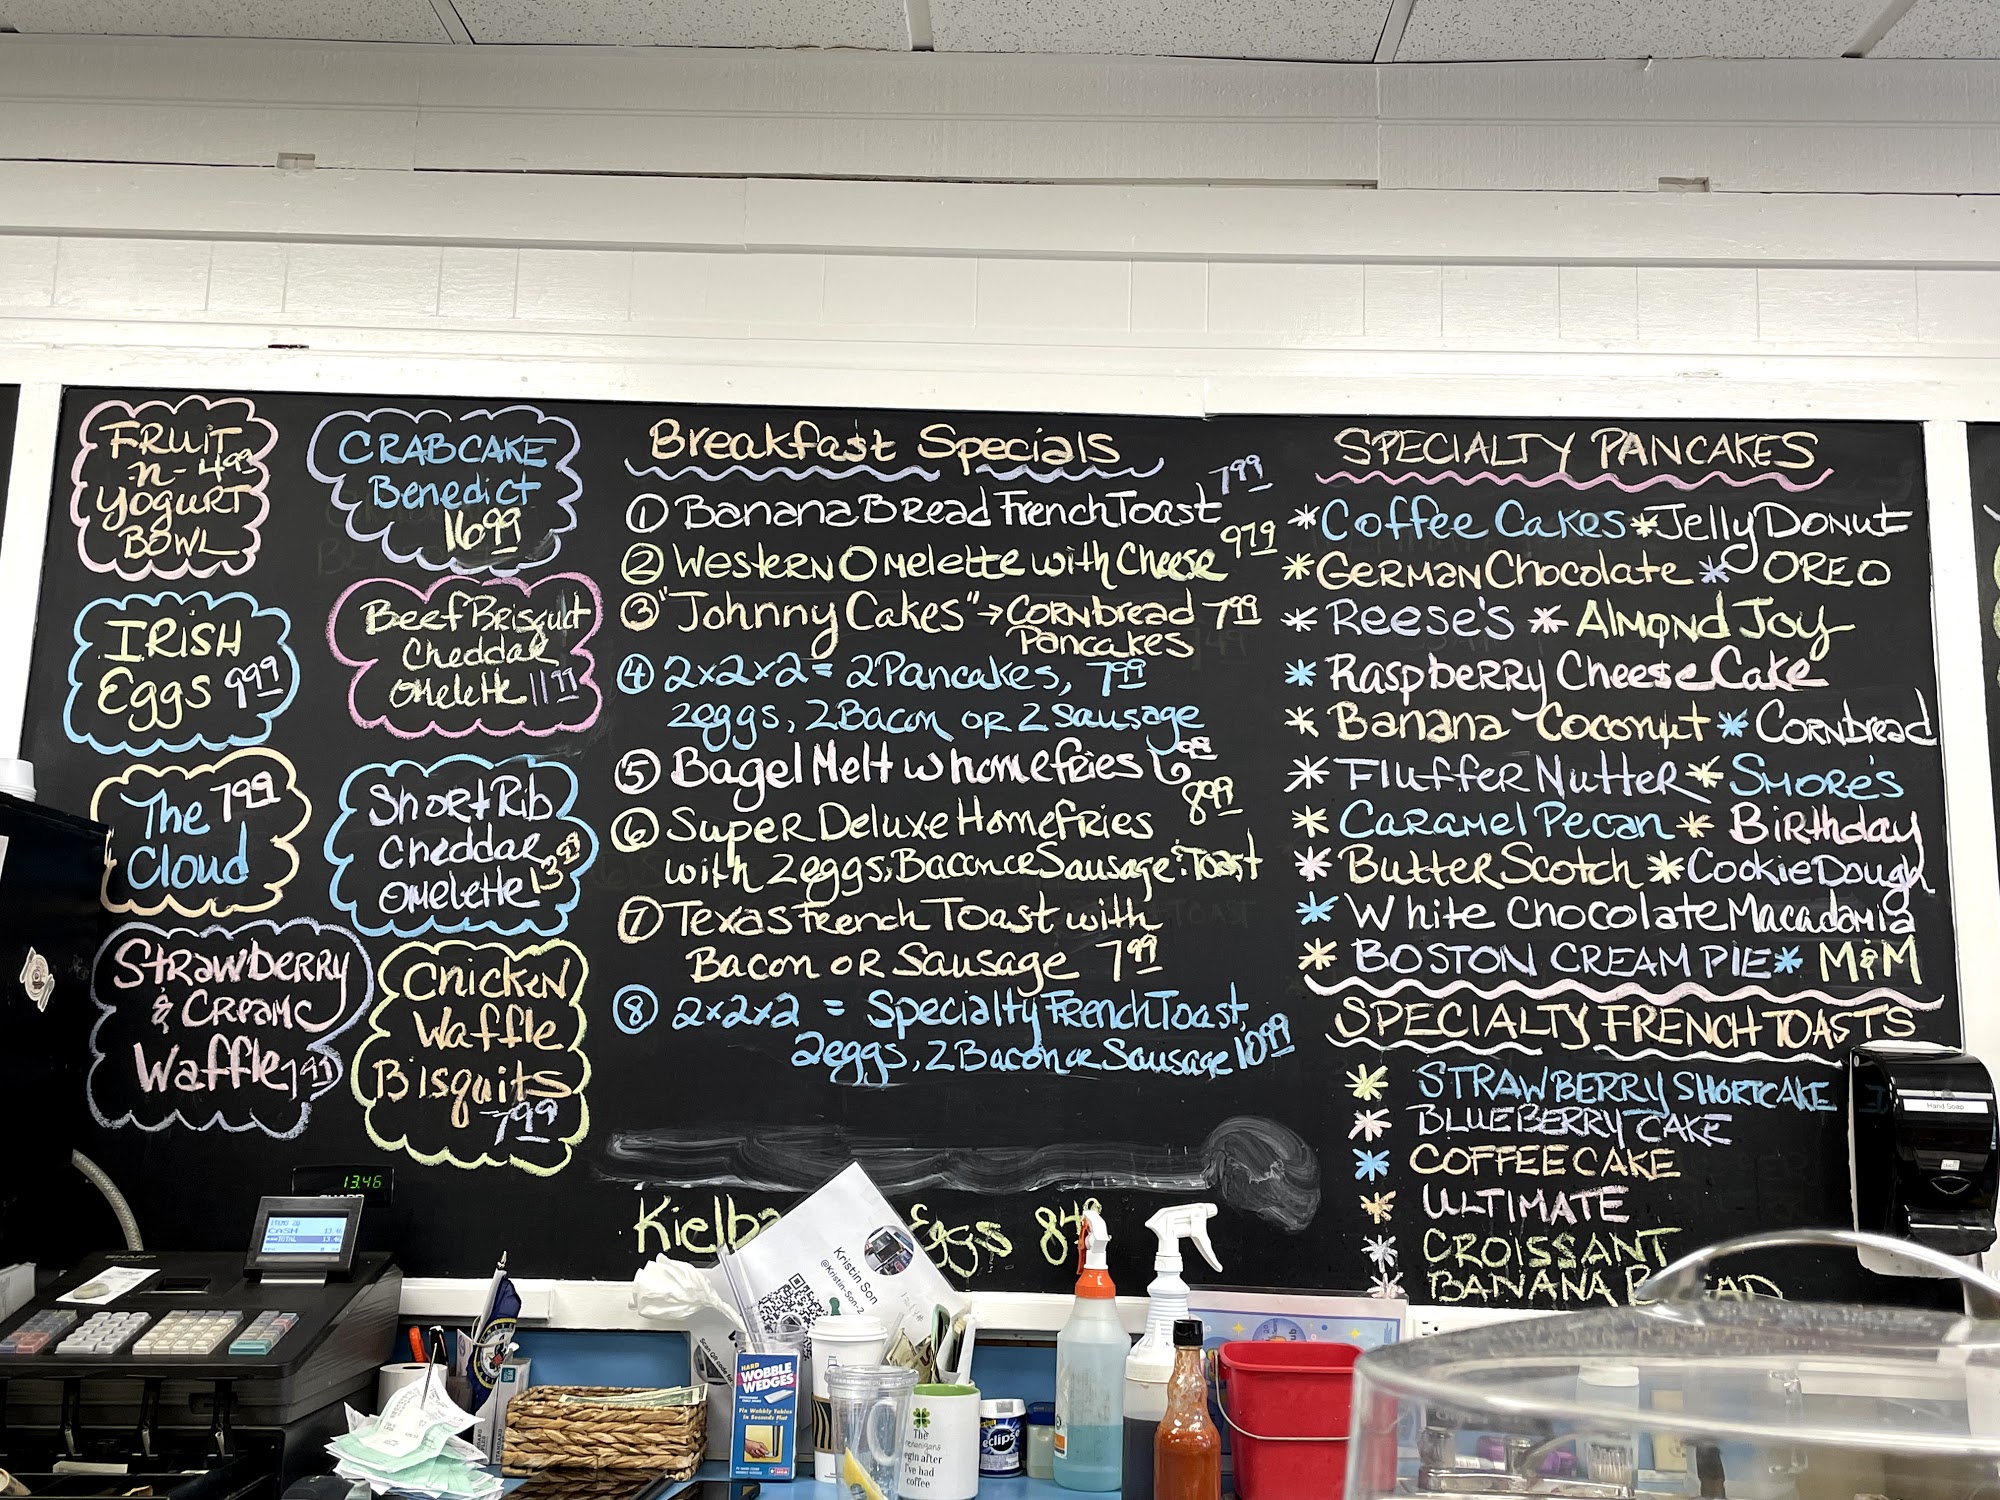 FRUIT
-n- 4.99
YOGURT
BOWL
CRABCAKE
Benedict
16.99
IRISH
Eggs 9.99
Beef Brisqut
Cheddar
Omelette 11.99
The 7.99
Cloud
Short Rib
Cheddar
Omelette 13.99
Strawberry
& Creame
Waffle 7.99
Chicken
Waffle
Bisquits
7.99
Breakfast Specials
① Banana Bread French Toast 7.99
② Western Omelette with Cheese 9.79
③ "Johnny Cakes" → Cornbread 7.99
Pancakes
④ 2x2x2 = 2 Pancakes, 7.99
2 eggs, 2 Bacon or 2 sausage
⑤ Bagel Melt w homefries
⑥ Super Deluxe Homefries 8.99
with 2 eggs, Bacon or Sausage & Toast
⑦ Texas French Toast with
Bacon or Sausage 7.99
⑧ 2x2x2 = Specialty French Toast,
2 eggs, 2 Bacon or Sausage 10.99
Eggs
SPECIALTY PANCAKES
* Coffee Cakes * Jelly Donut
* German Chocolate * OREO
* Reese's * Almond Joy
* Raspberry Cheese Cake
* Banana Coconut * Cornbread
* Fluffer Nutter * Smore's
* Caramel Pecan * Birthday
* Butter Scotch * Cookie Dough
* White Chocolate Macadamia
* BOSTON CREAM PIE * M&M
SPECIALTY FRENCH TOASTS
* STRAWBERRY SHORTCAKE
* BLUEBERRY CAKE
* COFFEE CAKE
* ULTIMATE
* CROISSANT
* BANANA
Hand Soap
13.46
SHARP
CASH
TOTAL
Kristin Son
@Kristin-Son-2
HARD
WOBBLE
WEDGES
Fix Wobbly Tables
In Seconds Flat
The
shenanigans
begin after
I've had
coffee
eclipse